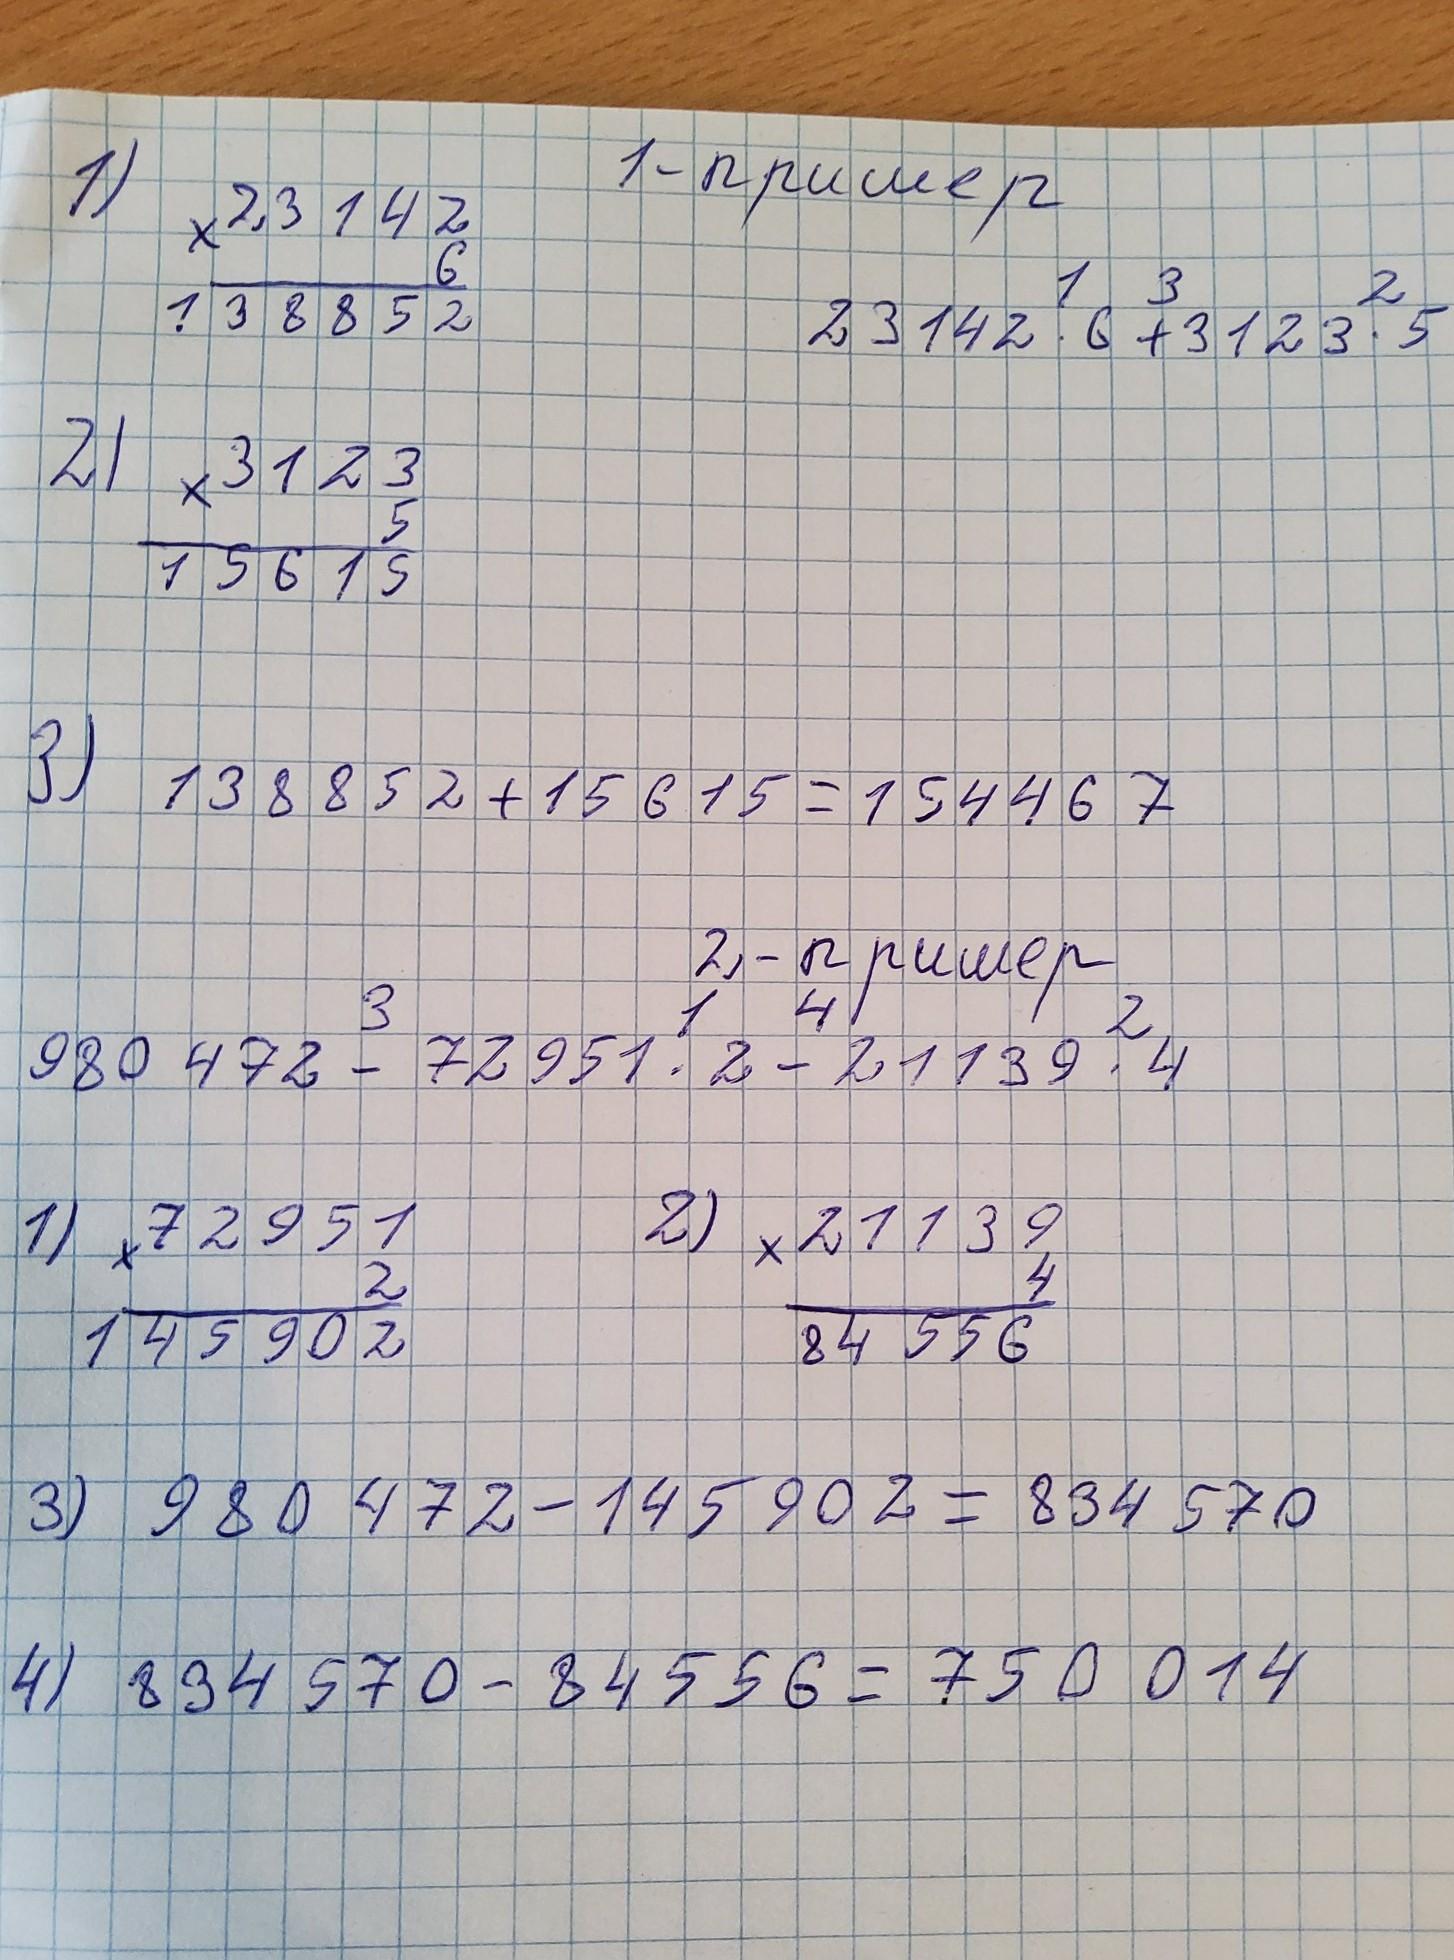 1) 1-пример
×23142
6
138852
1 3 2
23142·6+3123·5
2) ×3123
5
15615
3) 138852+15615=154467
2-пример
3 1 4 2
980 472-72951·2-21139·4
1) ×72951 2) ×21139
2 4
145902 84 556
3) 980 472-145902=834 570
4) 834 570-84556=750 014